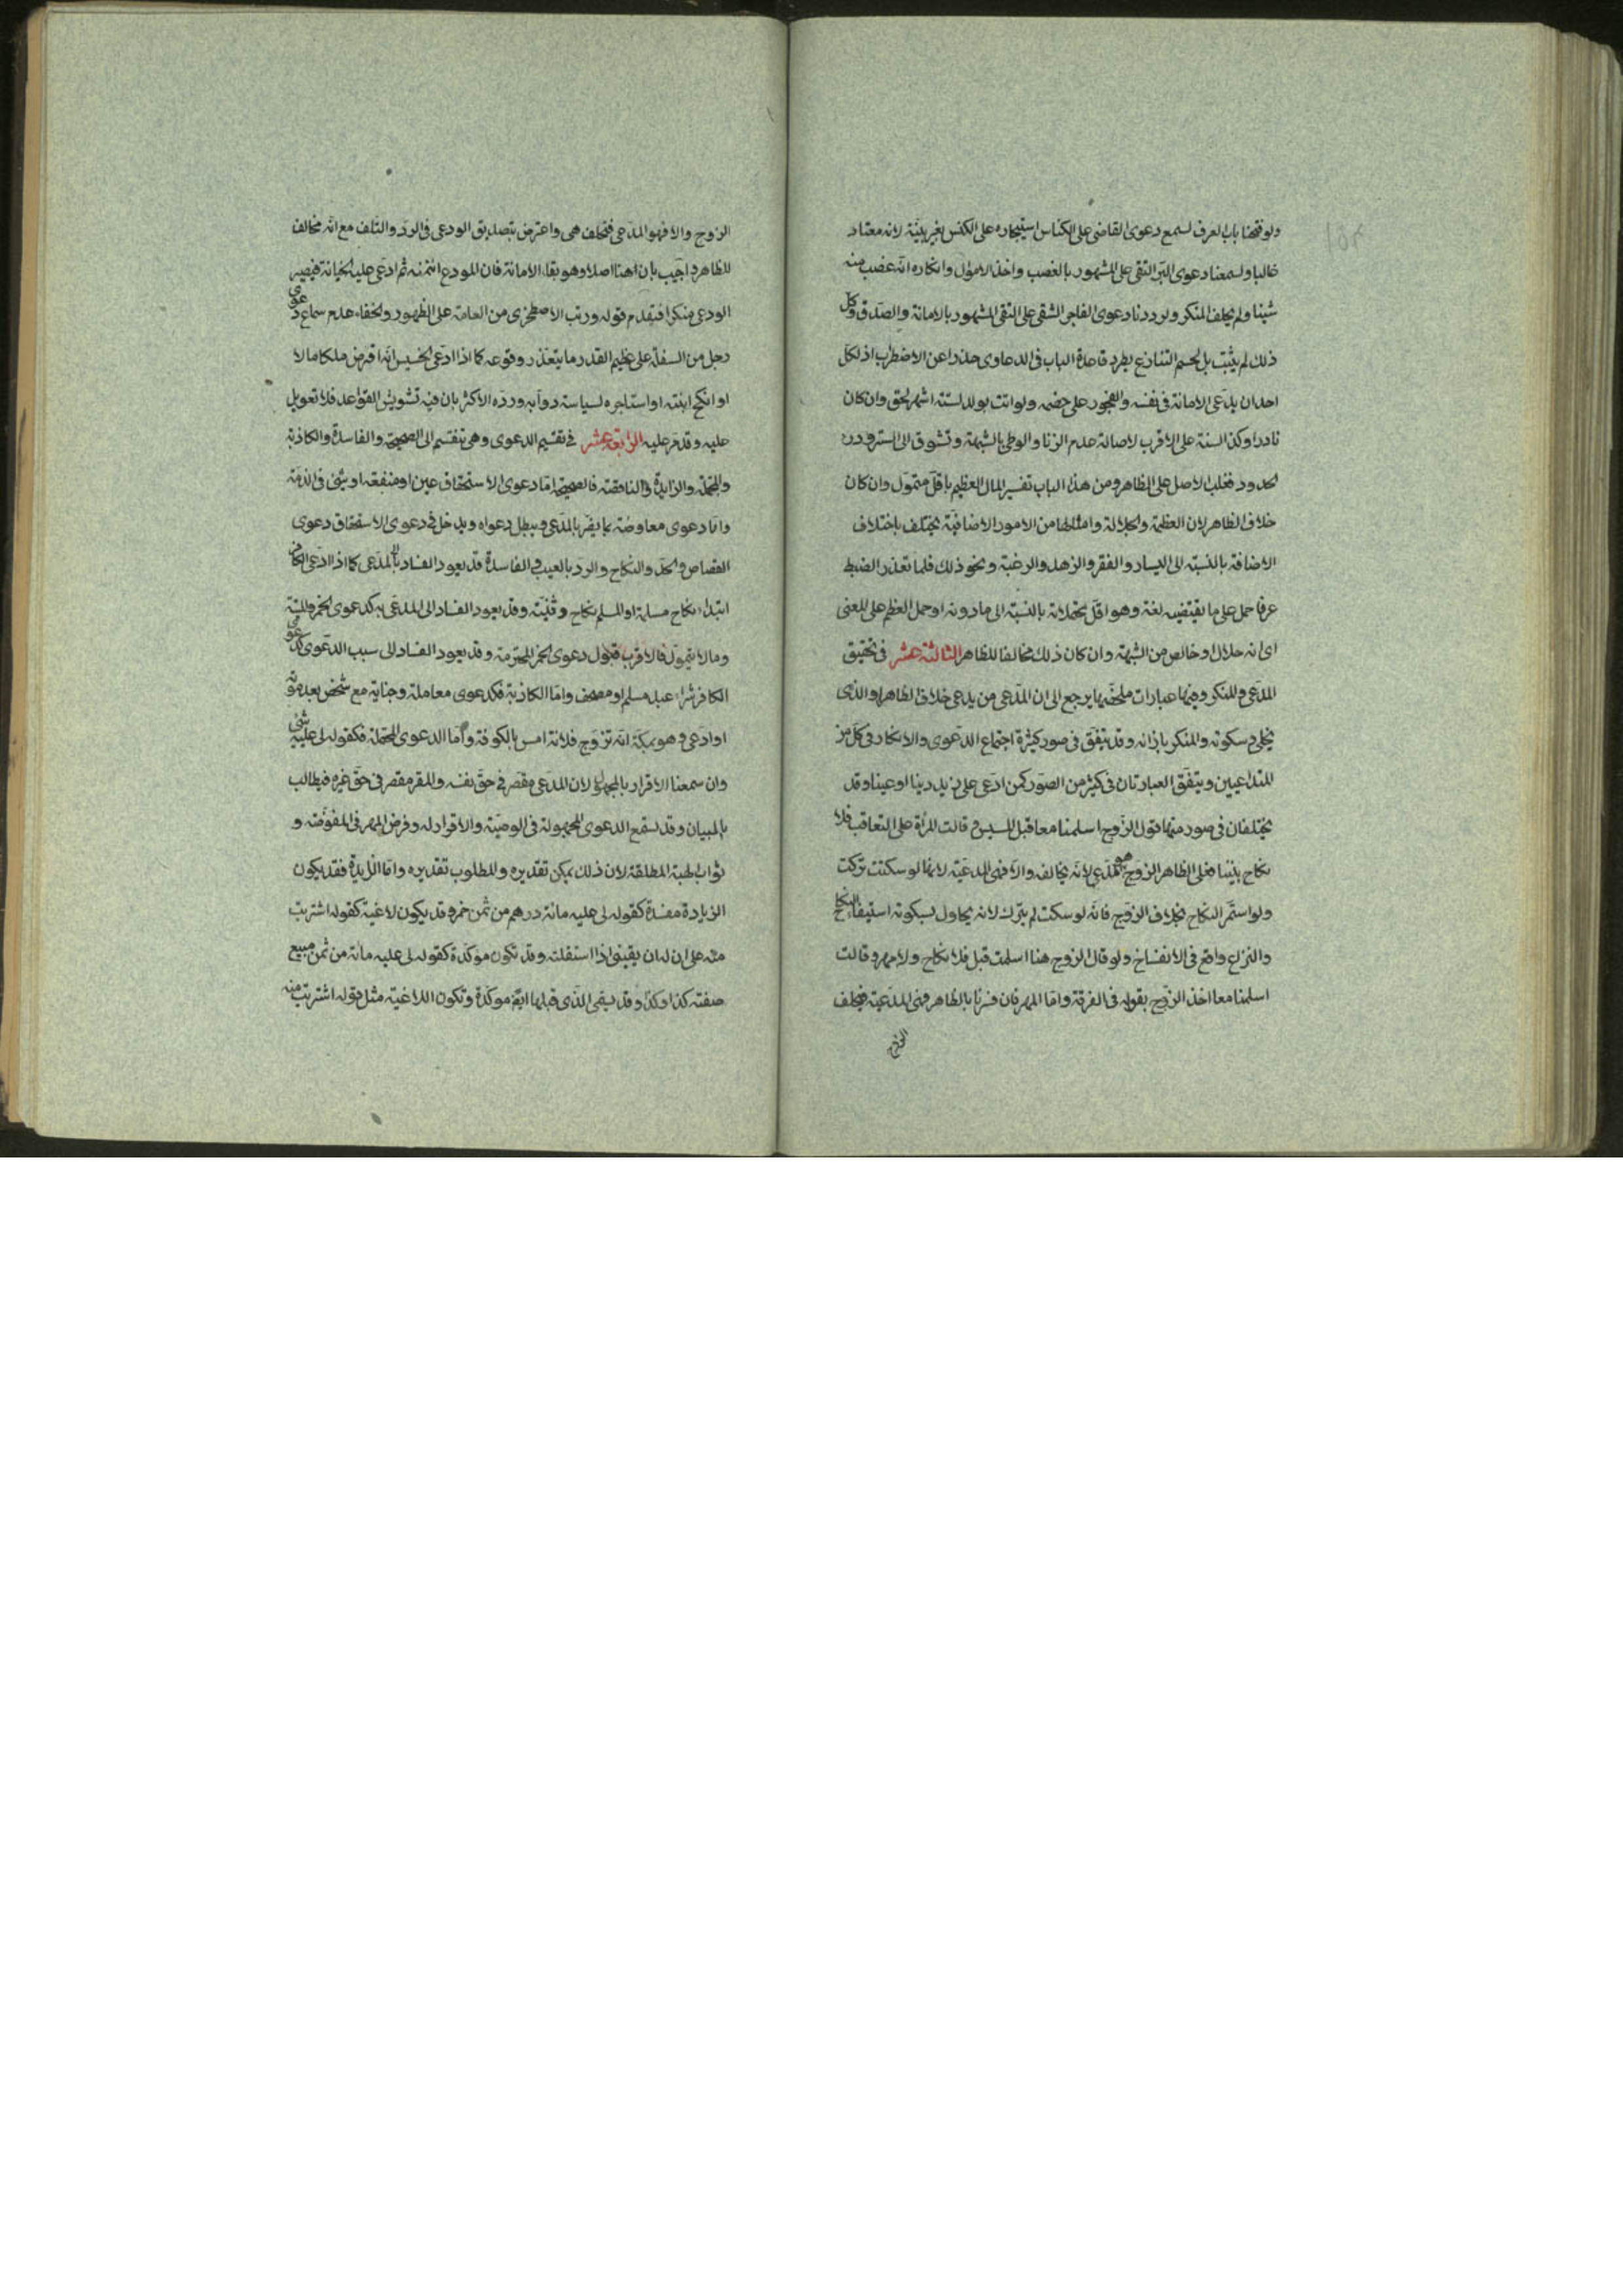 ولو فتحنا باب العرف لسمع دعوى القاضي على الكناس استيجاره على الكنس بغير بينة لانه معتاد
غالبا ولسمعنا دعوى البر التقى على المشهور بالغصب واخذ الاموال وانكاره انه غصب منه
شيئا ولم يحلف المنكر ولرددنا دعوى الفاجر الشقى على التقى المشهور بالامانة والصدق وكل
ذلك لم يثبت بل لحسم التنازع بطرد قاعدة الباب في الدعاوى حذرا عن الاضطراب اذ لكل
احد ان يدعى الامانة في نفسه والفجور على خصمه ولو اتت بولد لستة اشهر لحق وان كان
نادرا وكذا السنة على الاقرب لاصالة عدم الزنا والوطى بالشبهة وتشوق الى الستر ودرء
الحدود فغلب الاصل على الظاهر ومن هذا الباب تفسير المال العظيم باقل متمول وان كان
خلاف الظاهر لان العظمة والجلالة وامثالها من الامور الاضافية يختلف باختلاف
الاضافة بالنسبة الى اليسار والفقر والزهد والرغبة ونحو ذلك فلما تعذر الضبط
عرفا حمل على ما يقتضيه لغة وهو اقل محتملاته بالنسبة الى مادونه او حمل العظم على المعنى
اى انه حلال وخالص من الشبهة وان كان ذلك مخالفا للظاهر الثالثة عشر في تحقيق
المدعى والمنكر وفيها عبارات ملخصها يرجع الى ان المدعى من يدعى خلاف الظاهر او الذى
يخلى وسكوته والمنكر بازائه وقد يتفق في صور كثيرة اجتماع الدعوى والانكار في كل من
المتداعيين ويتفق العبارتان في كثير من الصور كمن ادعى على زيد دينا او عينا وقد
يختلفان في صور منها قول الزوج اسلمنا معا قبل المسيس وقالت المرأة على التعاقب فلا
نكاح بيننا فعلى الظاهر الزوج هو المدعى لانه يخالفه والا فهى المدعية لانها لو سكتت تركت
ولو استمر النكاح بخلاف الزوج فانه لو سكت لم يترك لانه يحاول بسكوته استيفاء النكاح
والنزاع واقع في الانفساخ ولو قال الزوج هنا اسلمت قبل فلا نكاح ولا مهر وقالت
اسلمنا معا اخذ الزوج بقوله في الفرقة واما المهر فان فسرنا بالظاهر فهى المدعية فيحلف
الزوج
الزوج والا فهو المدعى فتحلف هى واعترض بتصديق الودعى في الرد والتلف مع انه مخالف
للظاهر واجيب بان هنا اصلا وهو بقاء الامانة فان المودع ائتمنه ثم ادعى عليه الخيانة فيصير
الودعى منكرا فتقدم قوله ورتب الاصطخرى من العامة على الظهور والخفاء عدم سماع دعوى
رجل من السفلة على عظيم القدر ما يتعذر وقوعه كما اذا ادعى الخسيس انه اقرض ملكا مالا
او انكح ابنته او استاجره لسياسة دوابه ورده الاكثر بان فيه تشويش القواعد فلا تعويل
عليه وقد مر عليه الرابعة عشر في تقسيم الدعوى وهى تنقسم الى الصحيحة والفاسدة والكاذبة
والمجملة والزايدة والناقصة فالصحيحة اما دعوى الاستحقاق عين او منفعة او شئ في الذمة
واما دعوى معاوضة بما يضر بالمدعى ويبطل دعواه ويدخل في دعوى الاستحقاق دعوى
القصاص والحد والنكاح والرد بالعيب والفاسدة قد يعود الفساد الى المدعى كما اذا ادعى الكافر
ابتداء نكاح مسلمة او المسلم نكاح وثنية وقد يعود الفساد الى المدعى به كدعوى الخمر والميتة
وما لا يتمول فالاقرب قبول دعوى الخمر المحترمة وقد يعود الفساد الى سبب الدعوى كدعوى
الكافر شراء عبد مسلم او مصحف واما الكاذبة فكدعوى معاملة وجناية مع شخص بعد موته
او ادعى وهو بمكة انه تزوج فلانة امس بالكوفة واما الدعوى المجملة فكقوله لى عليه شئ
وان سمعنا الاقرار بالمجهول لان المدعى مقصر في حق نفسه والمقر مقصر في حق غيره فيطالب
بالبيان وقد تسمع الدعوى المجهولة في الوصية والاقرار له وفرض المهر في المفوضة و
ثواب الهبة المطلقة لان ذلك يمكن تقديره والمطلوب تقديره واما الزايدة فقد يكون
الزيادة مفسدة كقوله لى عليه مائة درهم من ثمن خمر وقد يكون لاغية كقوله اشتريت
منه على ان له ان يقيلنى اذا استقلته وقد تكون مؤكدة كقوله لى عليه مائة من ثمن مبيع
صفته كذا وكذا وقد يسمى الذى قبلها ايضا مؤكدة وتكون اللاغية مثل قوله اشتريت منه